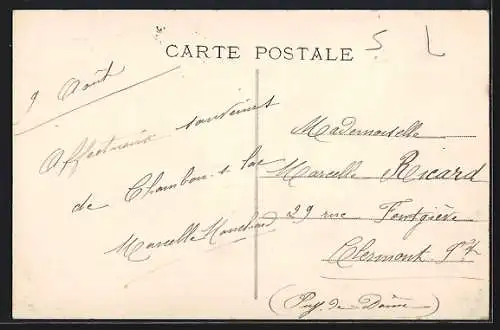 CARTE POSTALE
S L
9 Août
Affectueux souvenirs
de Chambon s lac
Marcelle
Mademoiselle
Marcelle Ricard
29 rue Fontgiève
Clermont Fd
(Puy de Dôme)